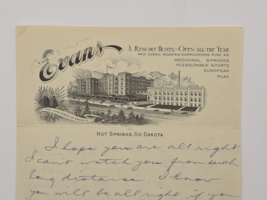 Evans
A Resort Hotel - Open all the Year
Medicinal Springs
Pleasurable Sports
European
Plan
Hot Springs, So. Dakota
I hope you are all right
I can't watch you from such
long distance. I know
you will be all right if you